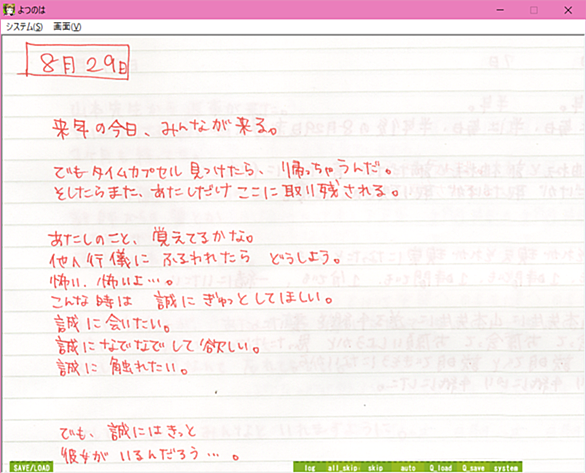 よつのは
システム(S) 画面(V)
8月29日
来年の今日、みんなが来る。
でもタイムカプセル見つけたら、帰っちゃうんだ。
そしたらまた、あたしだけここに取り残される。
あたしのこと、覚えてるかな。
他人行儀にふるわれたらどうしよう。
怖い、怖いよ…。
こんな時は誠にぎゅっとしてほしい。
誠に会いたい。
誠になでなでして欲しい。
誠に触れたい。
でも、誠にはきっと
彼女がいるんだろう…。
SAVE/LOAD log all_skip· skip auto Q_load Q_save system